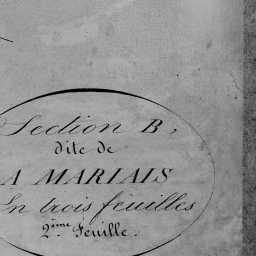 Section B,
dite de
A MARIAIS
En trois feuilles
2ème Feuille.